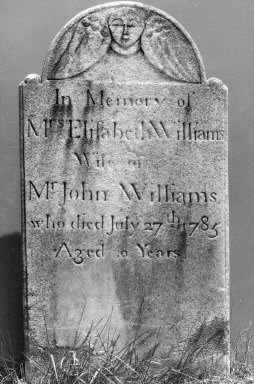 In Memory of
Mrs Elisabeth Williams
Wife of
Mr John Williams,
who died July 27th 1785
Aged 30 Years.